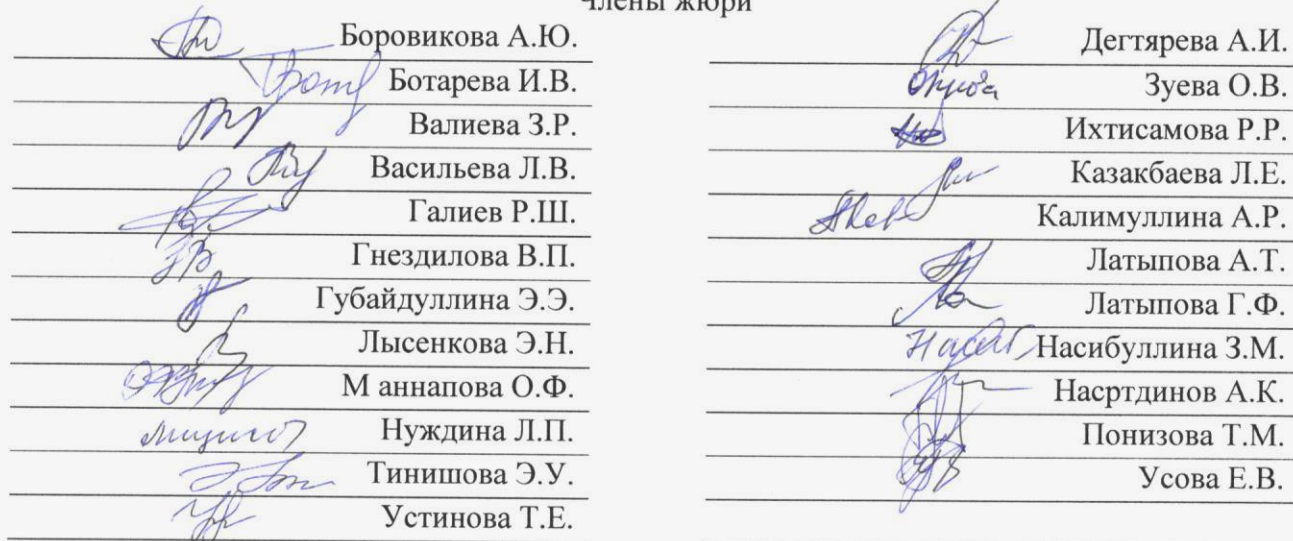 Члены жюри
Боровикова А.Ю.
Ботарева И.В.
Валиева З.Р.
Васильева Л.В.
Галиев Р.Ш.
Гнездилова В.П.
Губайдуллина Э.Э.
Лысенкова Э.Н.
М аннапова О.Ф.
Нуждина Л.П.
Тинишова Э.У.
Устинова Т.Е.
Дегтярева А.И.
Зуева О.В.
Ихтисамова Р.Р.
Казакбаева Л.Е.
Калимуллина А.Р.
Латыпова А.Т.
Латыпова Г.Ф.
Насибуллина З.М.
Насртдинов А.К.
Понизова Т.М.
Усова Е.В.